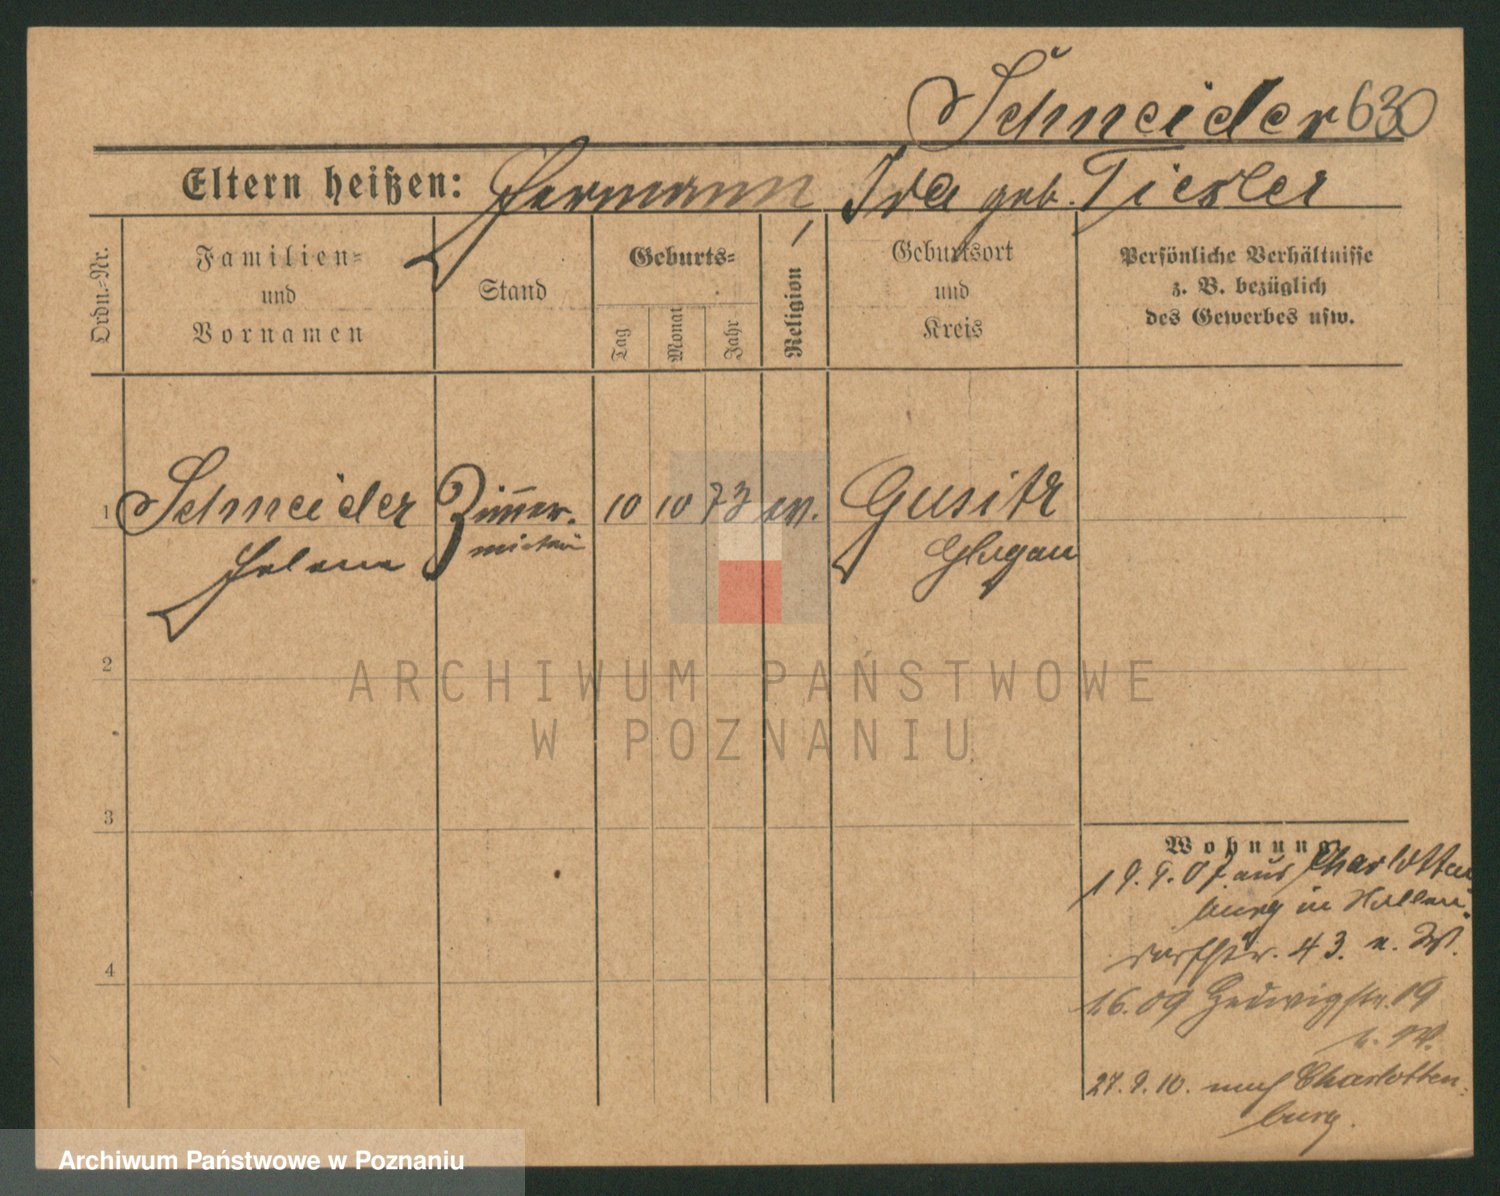 Schneider 630
Eltern heißen: Hermann Ida geb. Tiesler
Ordn.-Nr.
Familien-
und
Vornamen
Stand
Geburts-
Tag
Monat
Jahr
Religion
Geburtsort
und
Kreis
Persönliche Verhältnisse
z. B. bezüglich
des Gewerbes usw.
1 Schneider Zimmer- 10 10 73 ev. Gusitz
Helene Glogau
2
3
4
Wohnung
19.9.07. aus Charlotten
burg in Hallen-
dorfstr. 43.
Hedwigstr. 19
27.9.10. nach Charlotten-
burg.
ARCHIWUM PAŃSTWOWE
W POZNANIU
Archiwum Państwowe w Poznaniu